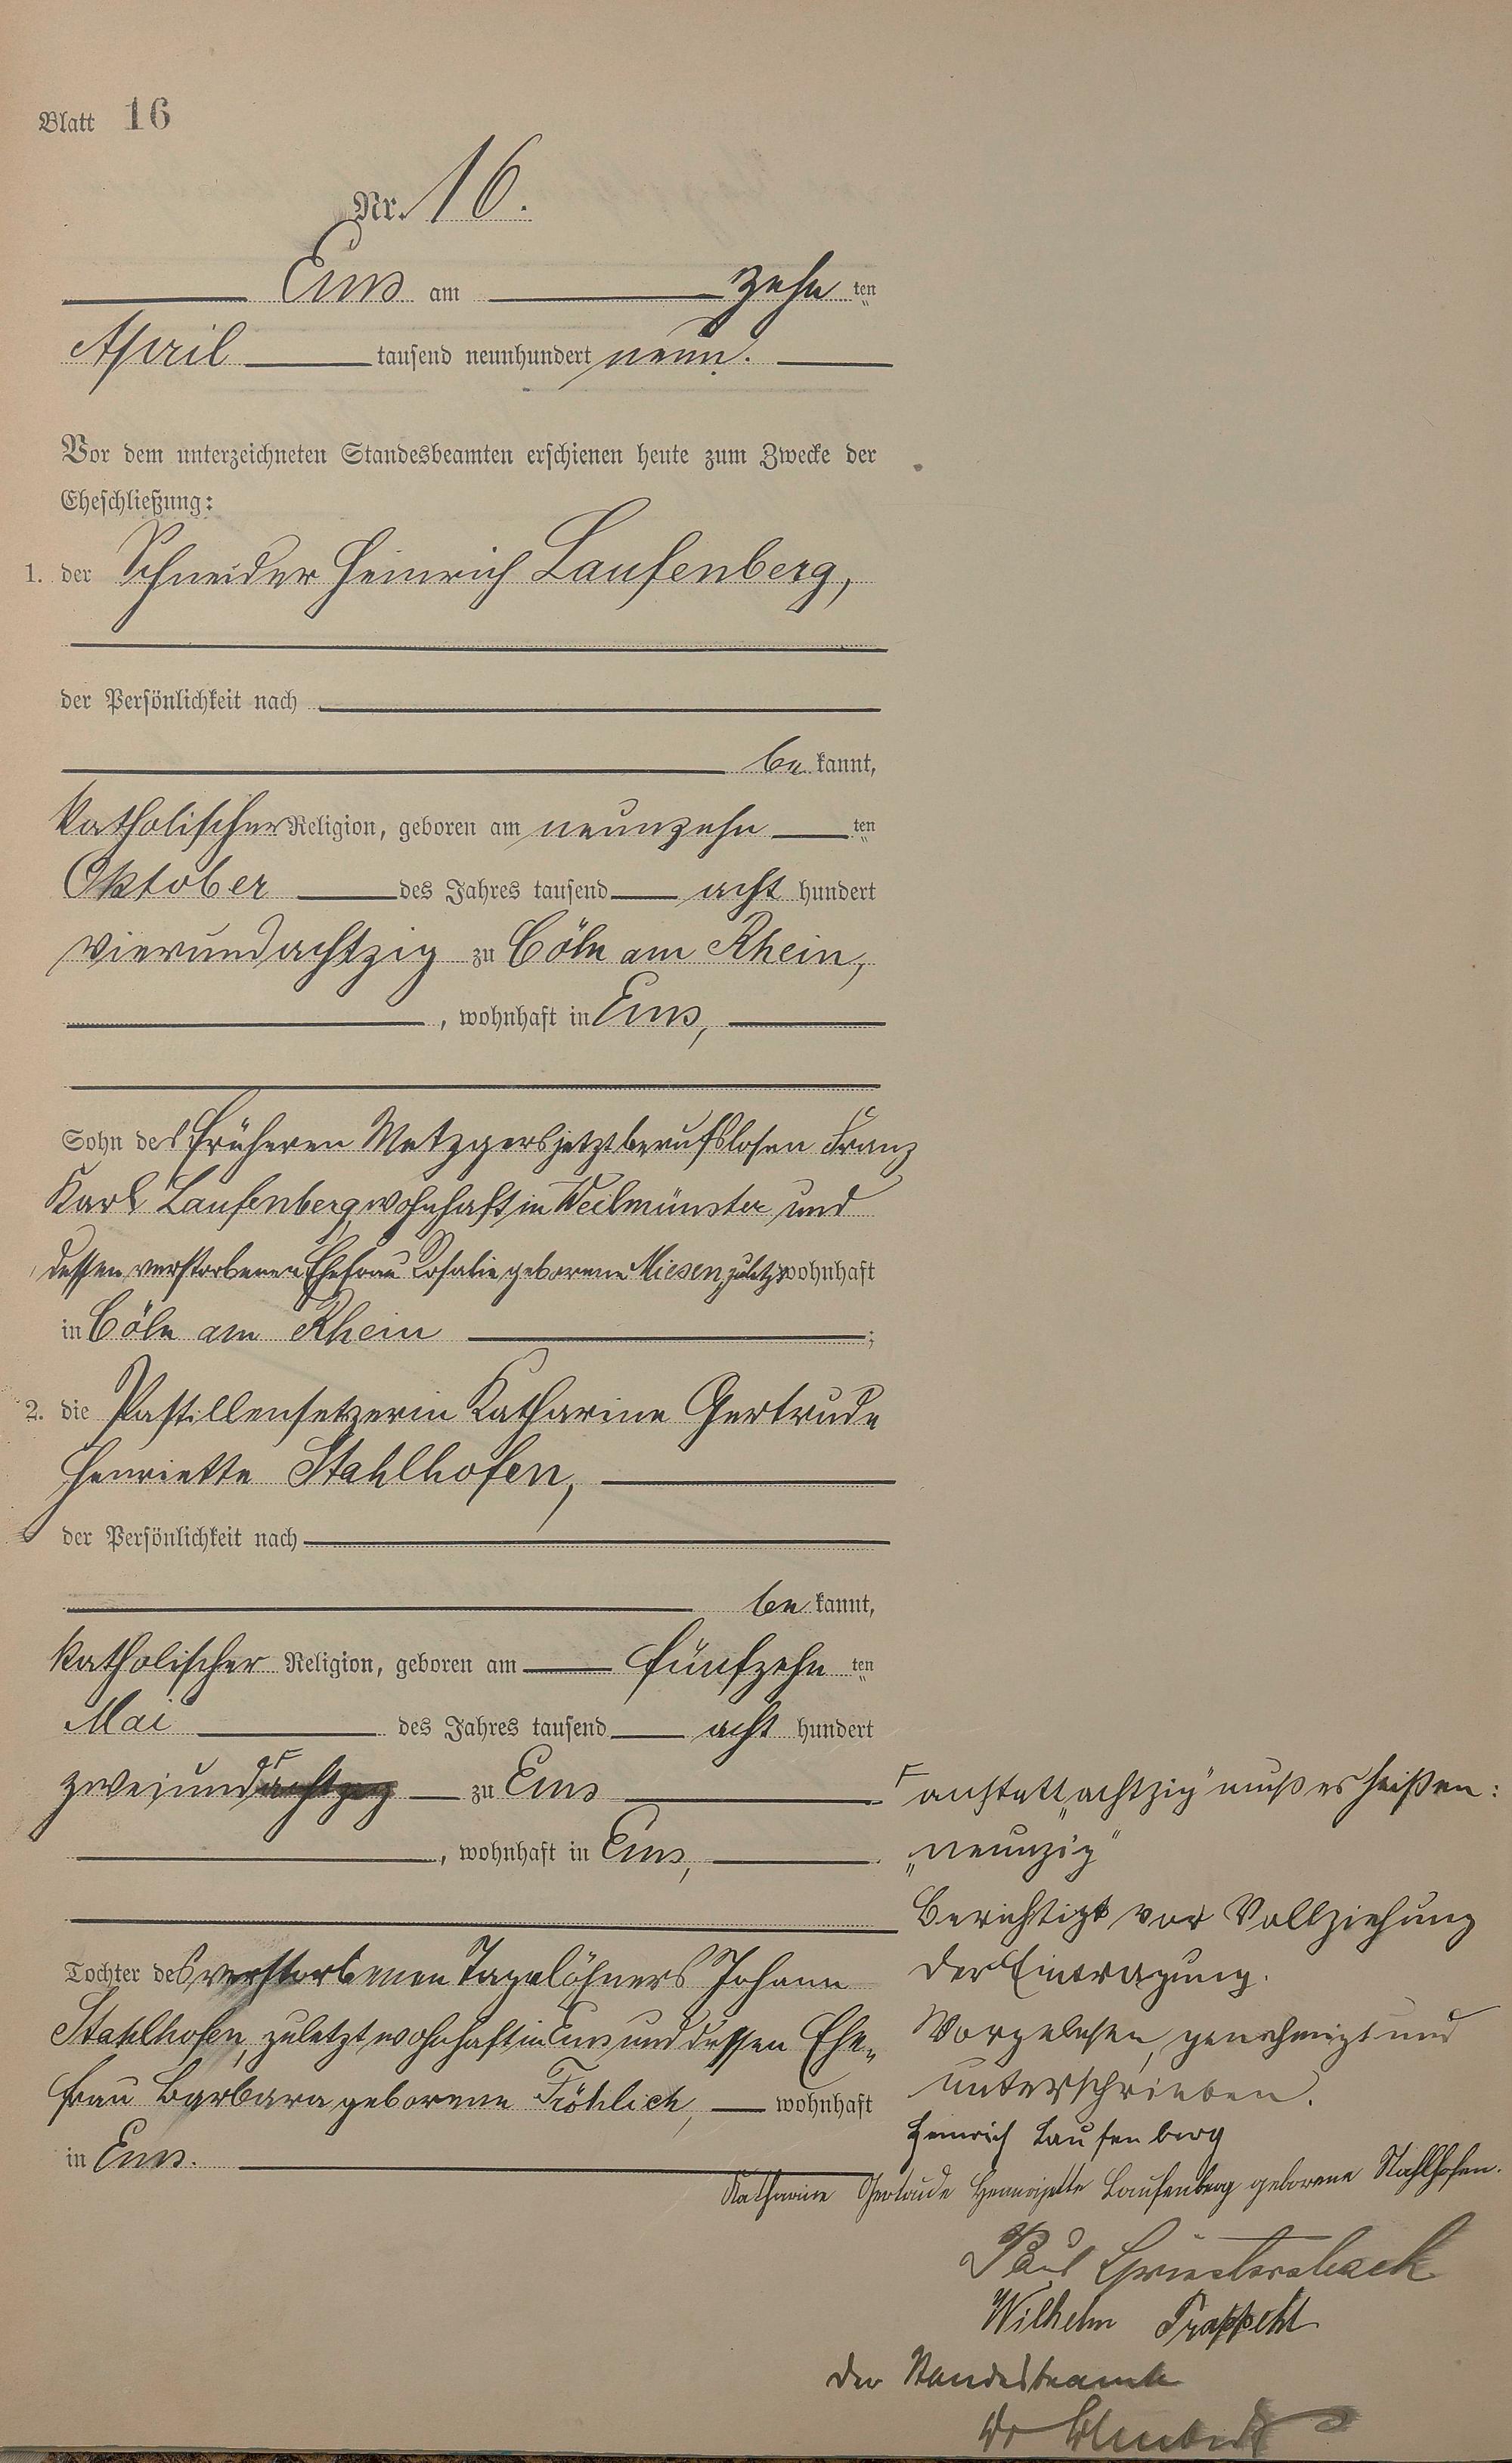 Blatt 16
Nr. 16.
Ems am zehn ten
April tausend neunhundert neun.
Vor dem unterzeichneten Standesbeamten erschienen heute zum Zwecke der
Eheschließung:
1. der Schneider Heinrich Laufenberg,
der Persönlichkeit nach
be kannt,
katholischer Religion, geboren am neunzehn ten
Oktober des Jahres tausend acht hundert
vierundachtzig zu Cöln am Rhein,
, wohnhaft in Ems,
Sohn des früheren Metzgers jetzt berufslosen Franz
Karl Laufenberg, wohnhaft in Weilmünster und
dessen verstorbenen Ehefrau Rosalie geborene Miesen, zuletzt wohnhaft
in Cöln am Rhein ;
2. die Pastillensetzerin Katharine Gertrude
Henriette Stahlhofen,
der Persönlichkeit nach
be kannt,
katholischer Religion, geboren am fünfzehn ten
Mai des Jahres tausend acht hundert
zweiundachtzig zu Ems
, wohnhaft in Ems,
Tochter des verstorbenen Tagelöhners Johann
Stahlhofen, zuletzt wohnhaft in Ems und dessen Ehe-
frau Barbara geborene Fröhlich, wohnhaft
in Ems.
anstatt „achtzig" muß es heißen:
„neunzig"
Berichtigt vor Vollziehung
der Eintragung.
Vorgelesen, genehmigt und
unterschrieben.
Heinrich Laufenberg
Katharine Gertrude Henriette Laufenberg geborene Stahlhofen.
Paul
Wilhelm
Der Standesbeamte